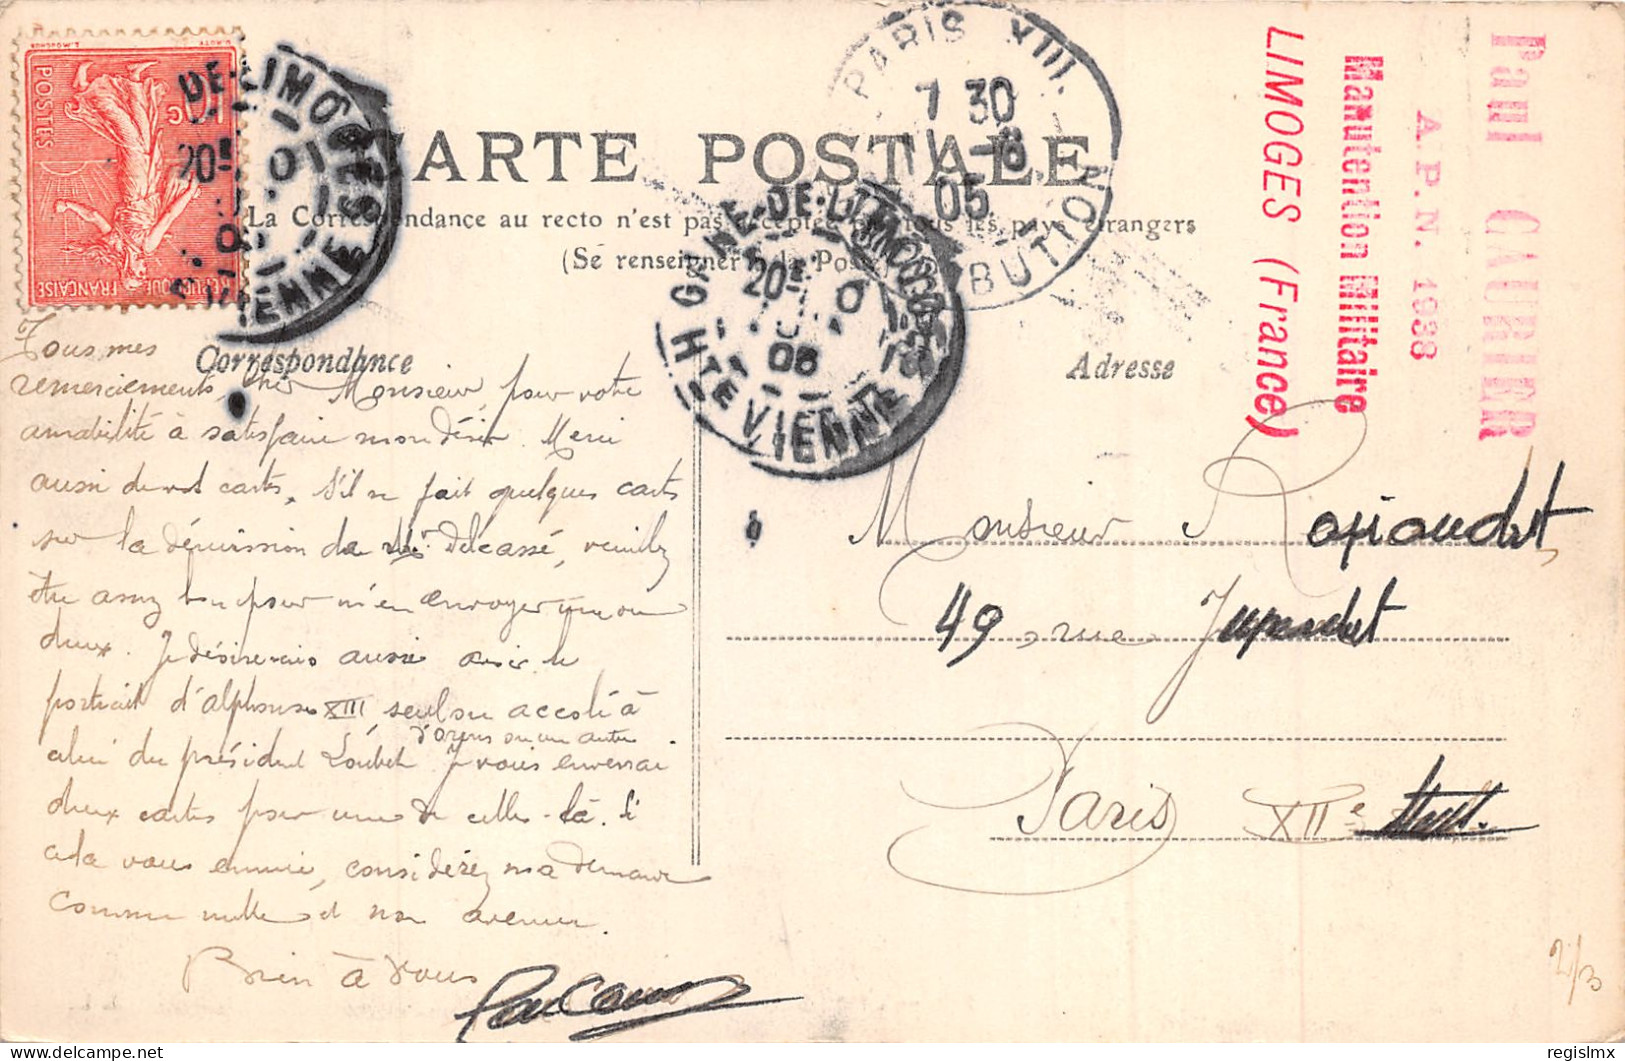 CARTE POSTALE
La Correspondance au recto n'est pas acceptée par tous les pays étrangers
(Se renseigner à la Poste)
Correspondance
Adresse
POSTES
10 c
REPUBLIQUE FRANÇAISE
GARE-DE-LIMOGES
20 E
Hte VIENNE
PARIS XIII.
7 30
11 -6
05
DISTRIBUTION
GARE-DE-LIMOGES
20 E
05
Hte VIENNE
Paul CAURIER
A. P. N. 1938
Manutention Militaire
LIMOGES (France)
Tous mes
remerciements, cher Monsieur, pour votre
amabilité à satisfaire mon désir. Merci
aussi de vos cartes. S'il se fait quelques cartes
sur la démission de Mr. Delcassé, veuillez
être assez bon pour m'en envoyer une ou
deux. Je désirerais aussi avoir le
portrait d'Alphonse XIII, seul ou accolé à
celui du président Loubet. Je vous enverrai
d'ores ou un autre
deux cartes pour une de celles-là. Si
cela vous ennuie, considérez ma demande
comme nulle et non avenue.
Bien à vous
Monsieur
49, rue
Paris XIIe
2/3
regislmx